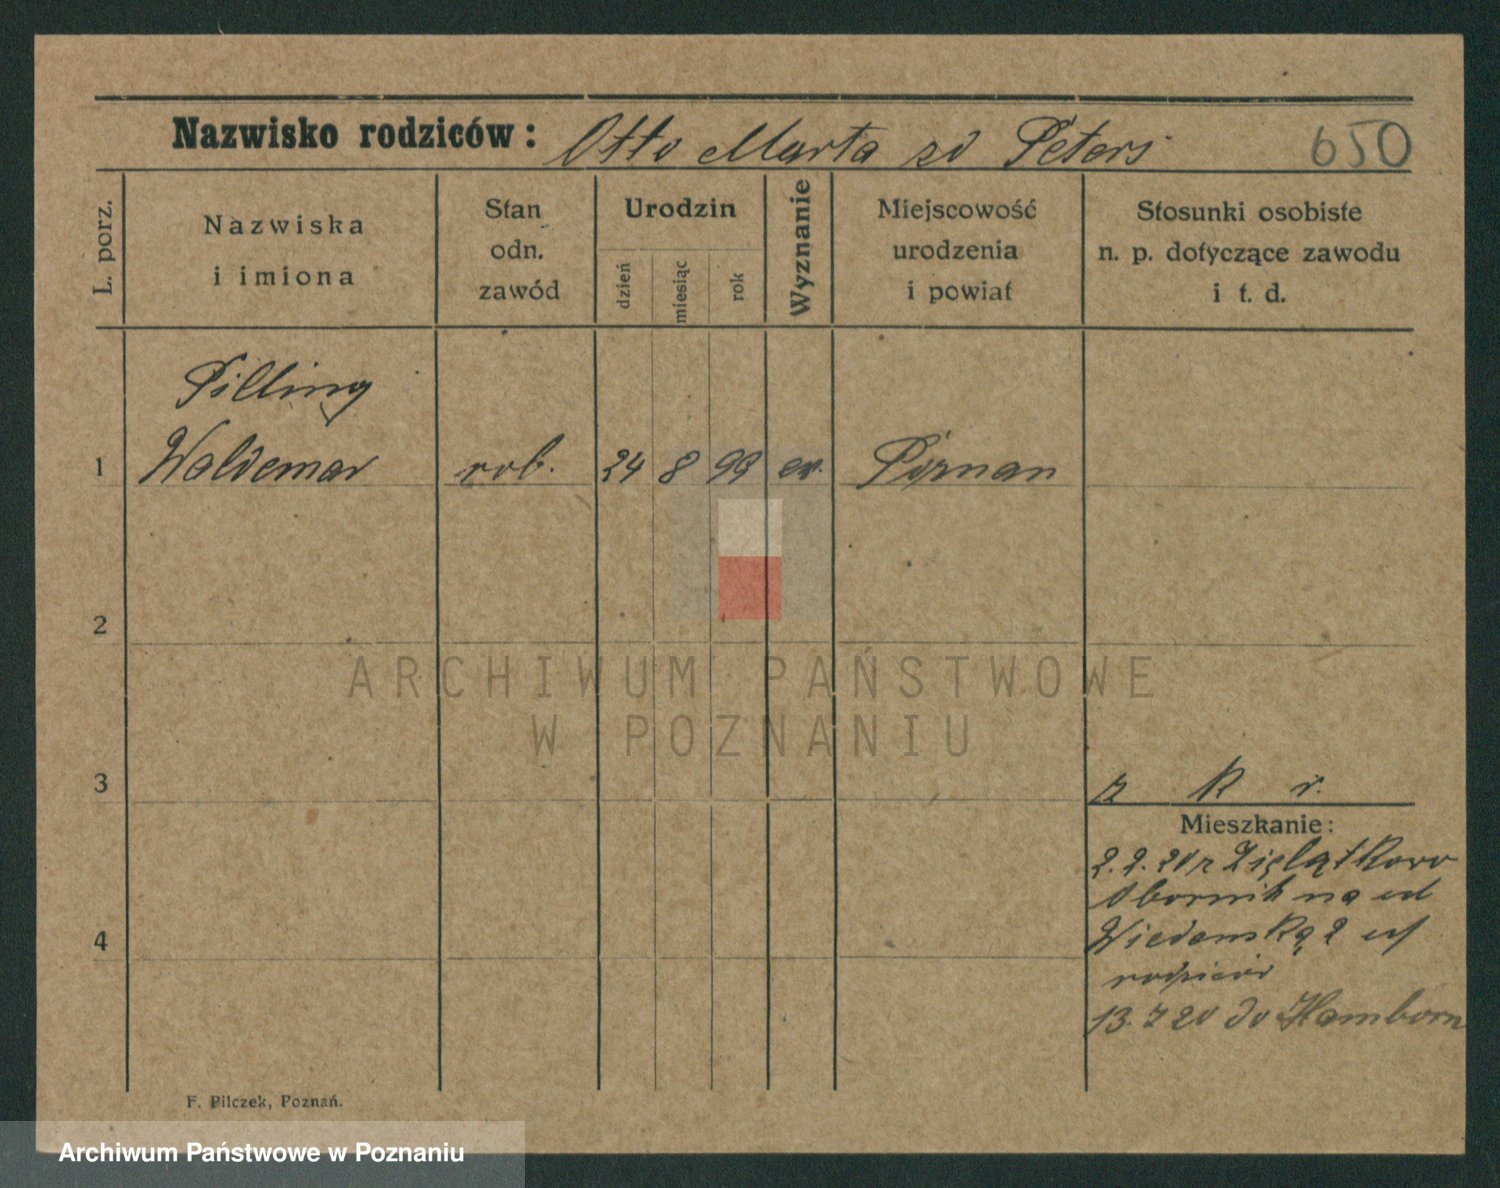 Nazwisko rodziców: Otto Marta zd Peters 650
L. porz.
Nazwiska
i imiona
Stan
odn.
zawód
Urodzin
dzień
miesiąc
rok
Wyznanie
Miejscowość
urodzenia
i powiat
Stosunki osobiste
n. p. dotyczące zawodu
i t. d.
Pilling
1 Waldemar rob. 24 8 99 ew. Poznan
2
ARCHIWUM PAŃSTWOWE
W POZNANIU
3
z k r.
Mieszkanie:
2.2.20 z Zielątkowo
Obornik na ul
Wiedenską 2 u/
rodzicow
4
13.7 20 do Hamborn
F. Pilczek, Poznań.
Archiwum Państwowe w Poznaniu